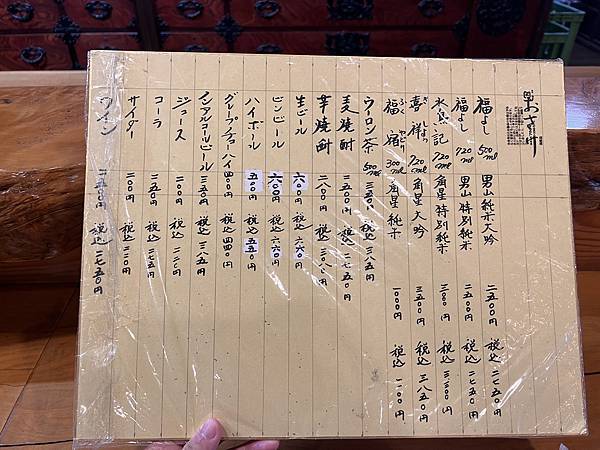 おさけ
福よし 500ml 男山純米大吟 二五〇〇円 税込 二七五〇円
福よし 720ml 男山特別純米 二五〇〇円 税込 二七五〇円
水鳥記 720ml 角星特別純米 三〇〇〇円 税込 三三〇〇円
喜祥 きしょう 720ml 角星大吟 三五〇〇円 税込 三八五〇円
福宿 ふくやどり 300ml 角星純米 一〇〇〇円 税込 一一〇〇円
ウーロン茶 500ml 三五〇円 税込 三八五円
麦焼酎 二五〇〇円 税込 二七五〇円
芋焼酎 二八〇〇円 税込
生ビール 六〇〇円 税込 六六〇円
ビンビール 六〇〇円 税込 六六〇円
ハイボール 五〇〇円 税込 五五〇円
グレープチューハイ 四〇〇円 税込 四四〇円
ノンアルコールビール 三五〇円 税込 三八五円
ジュース 二〇〇円 税込 二二〇円
コーラ 二五〇円 税込 二七五円
サイダー 二〇〇円 税込 二二〇円
ワイン 二五〇〇円 税込 二七五〇円